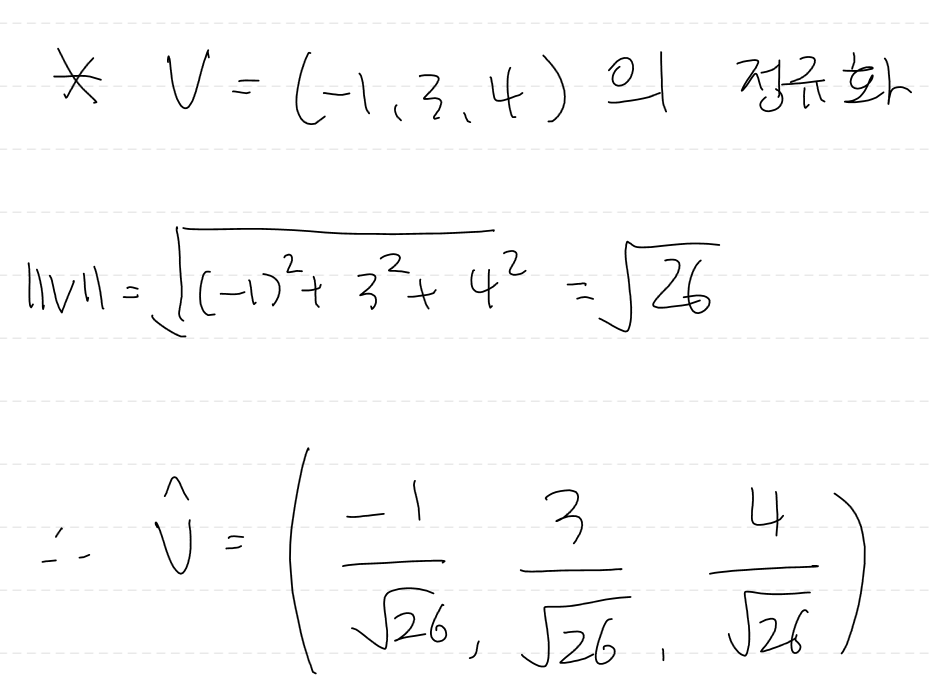 * V = (-1, 3, 4) 의 정규화
||V|| = √((-1)² + 3² + 4²) = √26
∴ V̂ = (-1/√26, 3/√26, 4/√26)